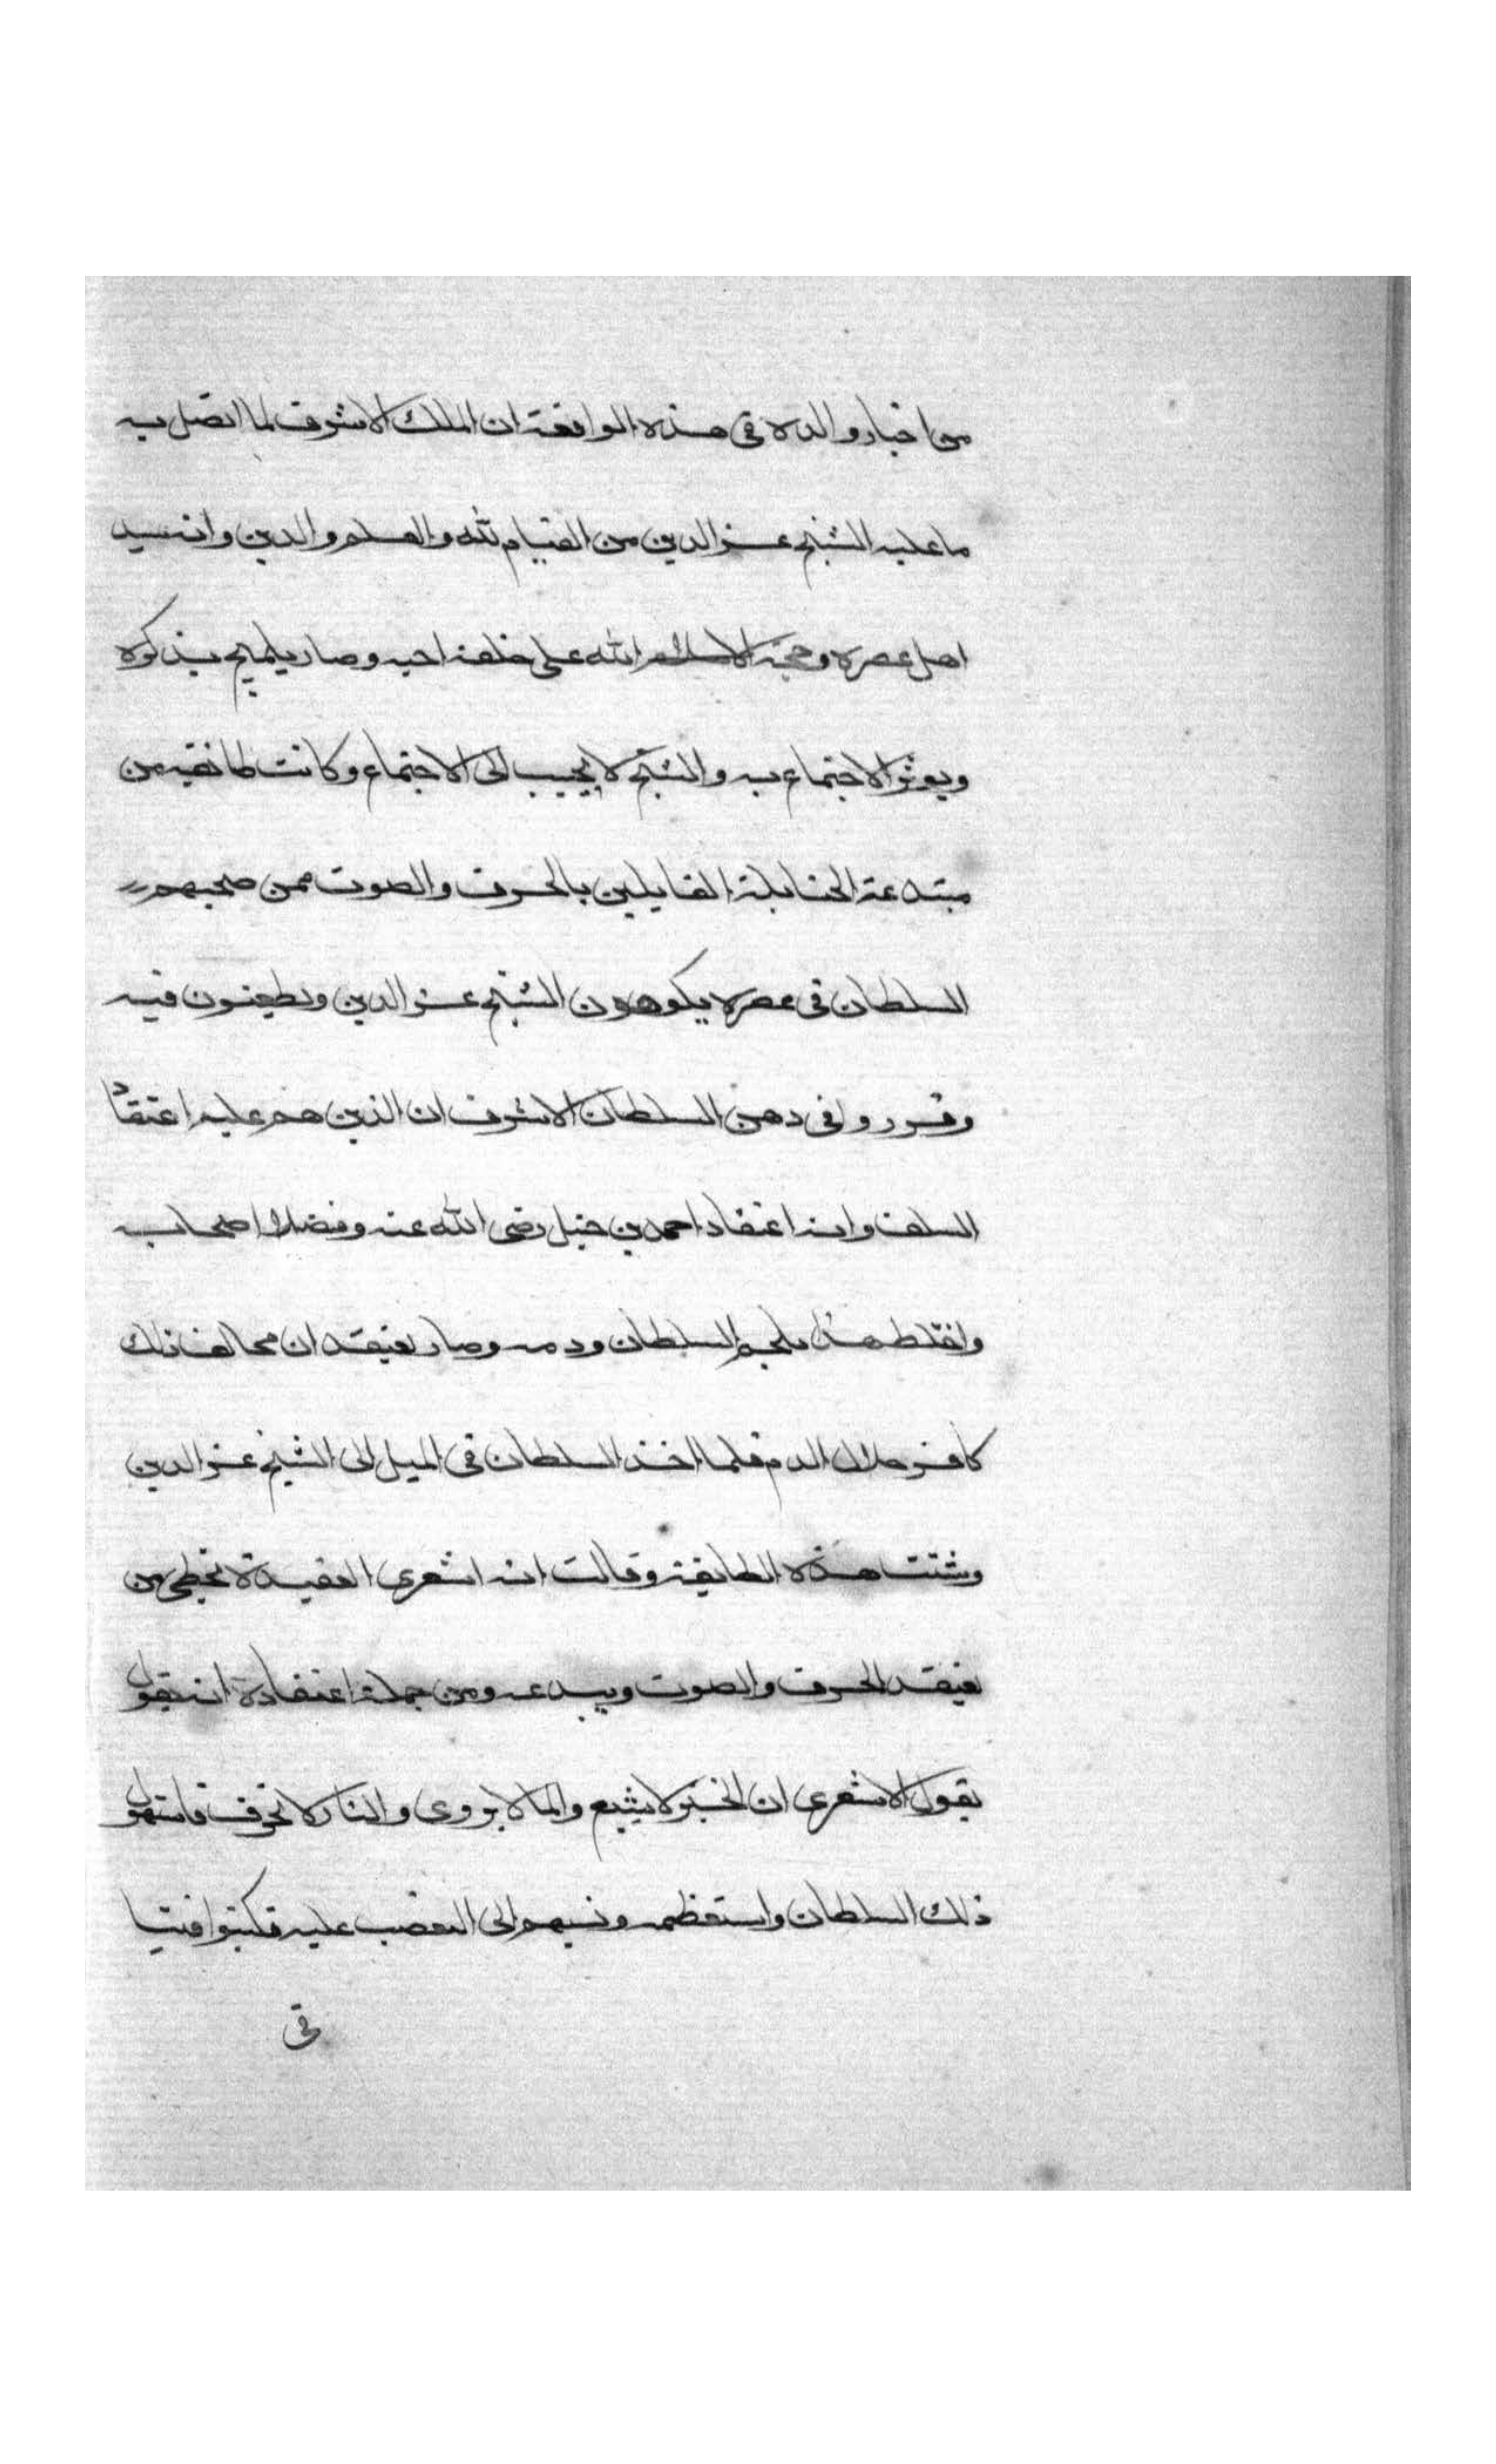 من اخبار والده في هذه الواقعة ان الملك الاشرف لما اتصل به
ما عليه الشيخ عز الدين من القيام لله والعلم والدين وانه سيد
اهل عصره وحجة الله على خلقه احبه وصار يلهج بذكره
ويوثر الاجتماع به والشيخ لا يجيب الى الاجتماع وكانت طائفة من
مبتدعة الحنابلة القايلين بالحرف والصوت ممن صحبهم
السلطان في عصره يكرهون الشيخ عز الدين ويطعنون فيه
وقرروا في دهن السلطان الاشرف ان الذين هم عليه اعتقاد
السلف وانه اعتقاد احمد بن حنبل رضي الله عنه وفضلا اصحابه
واختلط هذا بلحم السلطان ودمه وصار يعتقد ان مخالف ذلك
كافر حلال الدم فلما اخذ السلطان في الميل الى الشيخ عز الدين
هذه الطايفة وقالت انه اشعري العقيدة يخطي من
يعتقد الحرف والصوت ويبدعه ومن جملة اعتقاده انه يقول
يقول الاشعري ان الخبز لا يشبع والما لا يروي والنار لا تحرق فاستهول
ذلك السلطان واستعظمه ونسبهم الى التعصب عليه فكتبوا فتيا
في